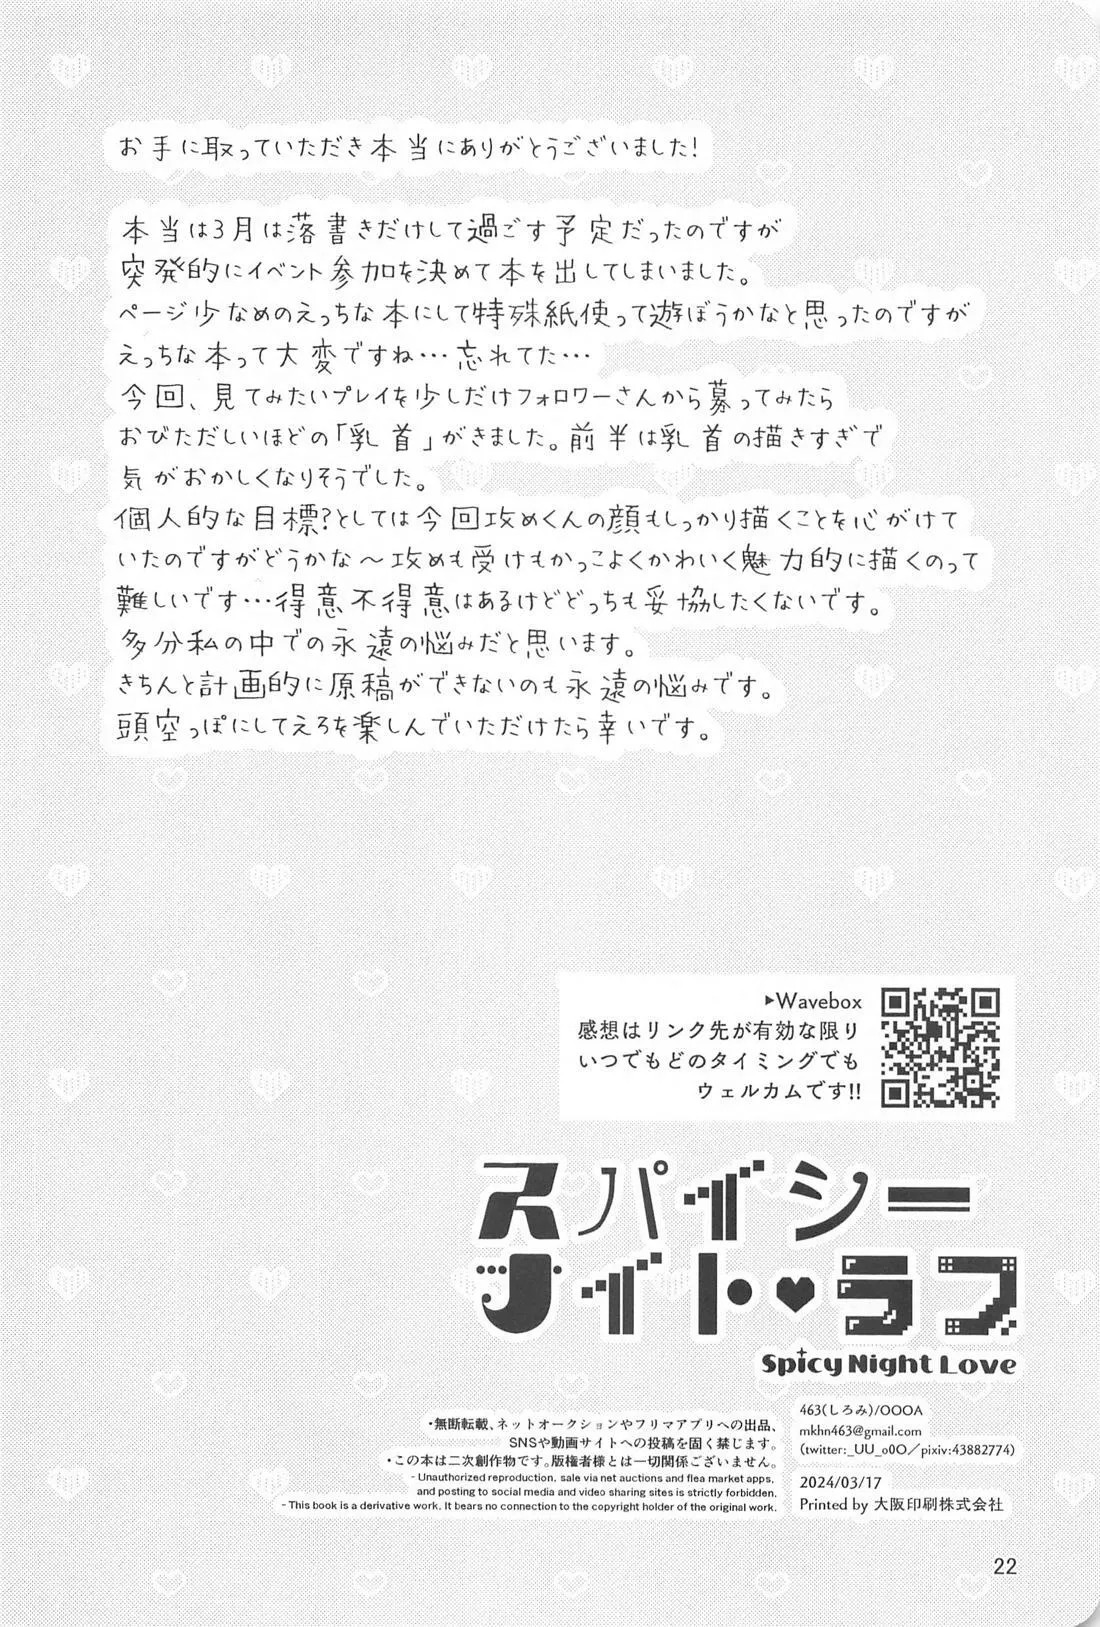 お手に取っていただき本当にありがとうございました!
本当は3月は落書きだけして過ごす予定だったのですが
突発的にイベント参加を決めて本を出してしまいました。
ページ少なめのえっちな本にして特殊紙使って遊ぼうかなと思ったのですが
えっちな本って大変ですね…忘れてた…
今回、見てみたいプレイを少しだけフォロワーさんから募ってみたら
おびただしいほどの「乳首」がきました。前半は乳首の描きすぎで
気がおかしくなりそうでした。
個人的な目標?としては今回攻めくんの顔もしっかり描くことを心がけて
いたのですがどうかな～攻めも受けもかっこよくかわいく魅力的に描くのって
難しいです…得意不得意はあるけどどっちも妥協したくないです。
多分私の中での永遠の悩みだと思います。
きちんと計画的に原稿ができないのも永遠の悩みです。
頭空っぽにしてえろを楽しんでいただけたら幸いです。
▶Wavebox
感想はリンク先が有効な限り
いつでもどのタイミングでも
ウェルカムです!!
スパイシー
ナイト♥ラブ
Spicy Night Love
463(しろみ)/OOOA
mkhn463@gmail.com
(twitter:_UU_o0O／pixiv:43882774)
2024/03/17
Printed by 大阪印刷株式会社
・無断転載、ネットオークションやフリマアプリへの出品、
SNSや動画サイトへの投稿を固く禁じます。
・この本は二次創作物です。版権者様とは一切関係ございません。
- Unauthorized reproduction, sale via net auctions and flea market apps,
and posting to social media and video sharing sites is strictly forbidden.
- This book is a derivative work. It bears no connection to the copyright holder of the original work.
22